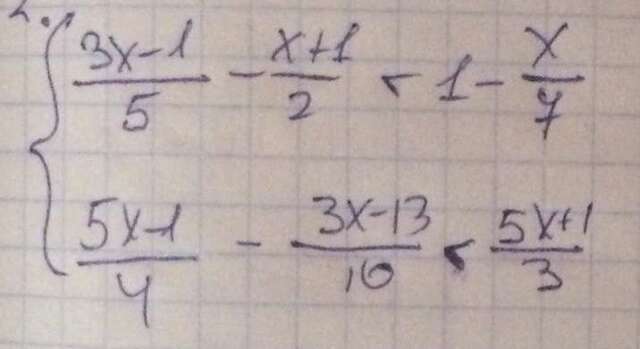 2.
{ (3x-1)/5 - (x+1)/2 < 1 - x/7
(5x-1)/4 - (3x-13)/10 < (5x+1)/3